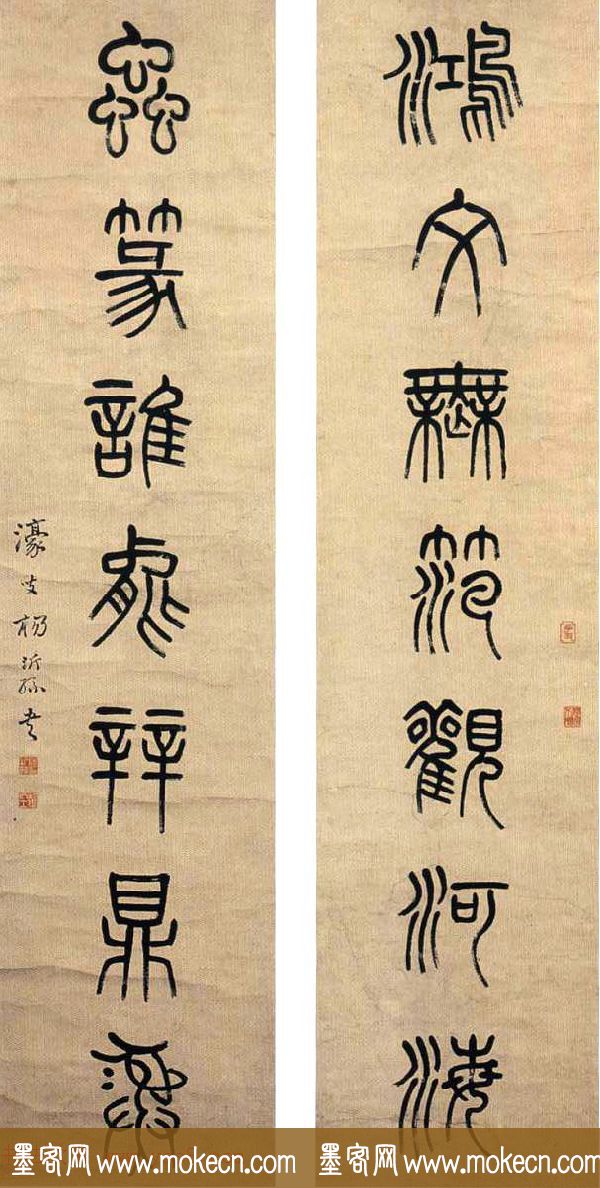 鴻文無笵觀河海
蟲篆誰能辡鼎彝
濠叟楊沂孫
墨客网 www.mokecn.com
墨客网 www.mokecn.com